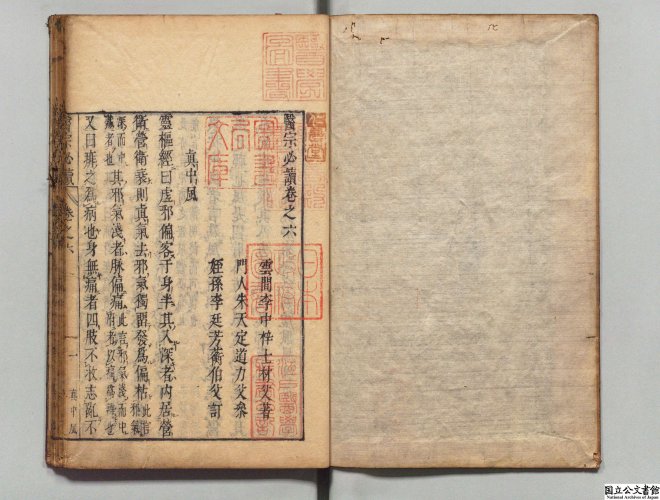 醫宗必讀卷之六
雲間李中梓士材父著
門人朱天定道力父參
姪孫李廷芳蘅伯父訂
真中風
靈樞經曰虛邪偏客于身半其入深者內居營
衛營衛衰則真氣去邪氣獨留發為偏枯
其邪氣淺者脉偏痛
又曰痱之為病也身無痛者四肢不收志亂不
醫宗必讀 卷之六 一 真中風
日本
醫學
国立公文書館
National Archives of Japan